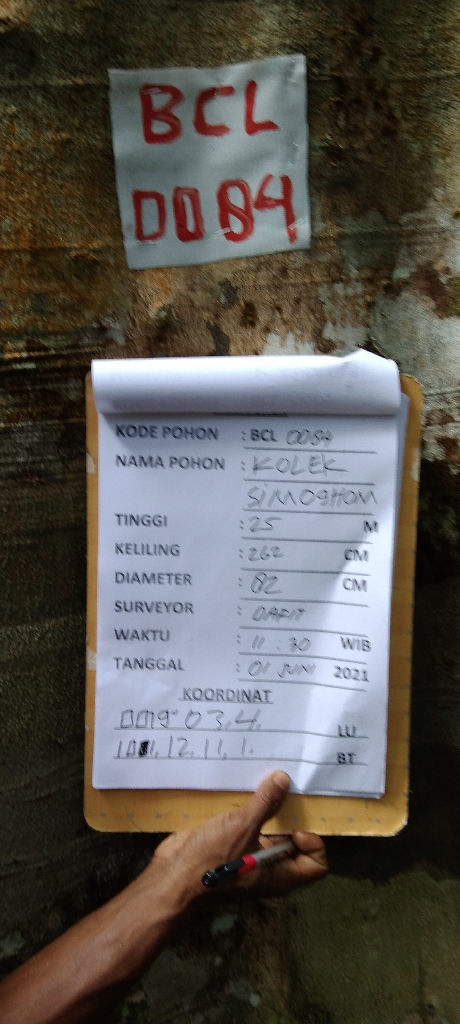 BCL
0084
KODE POHON : BCL 0084
NAMA POHON : KOLEK
SIMOGHOM
TINGGI : 25 M
KELILING : 262 CM
DIAMETER : 82 CM
SURVEYOR : DAFIT
WAKTU : 11 : 30 WIB
TANGGAL : 01 JUNI 2021
KOORDINAT
0019° 03.4. LU
101.12.11.1. BT